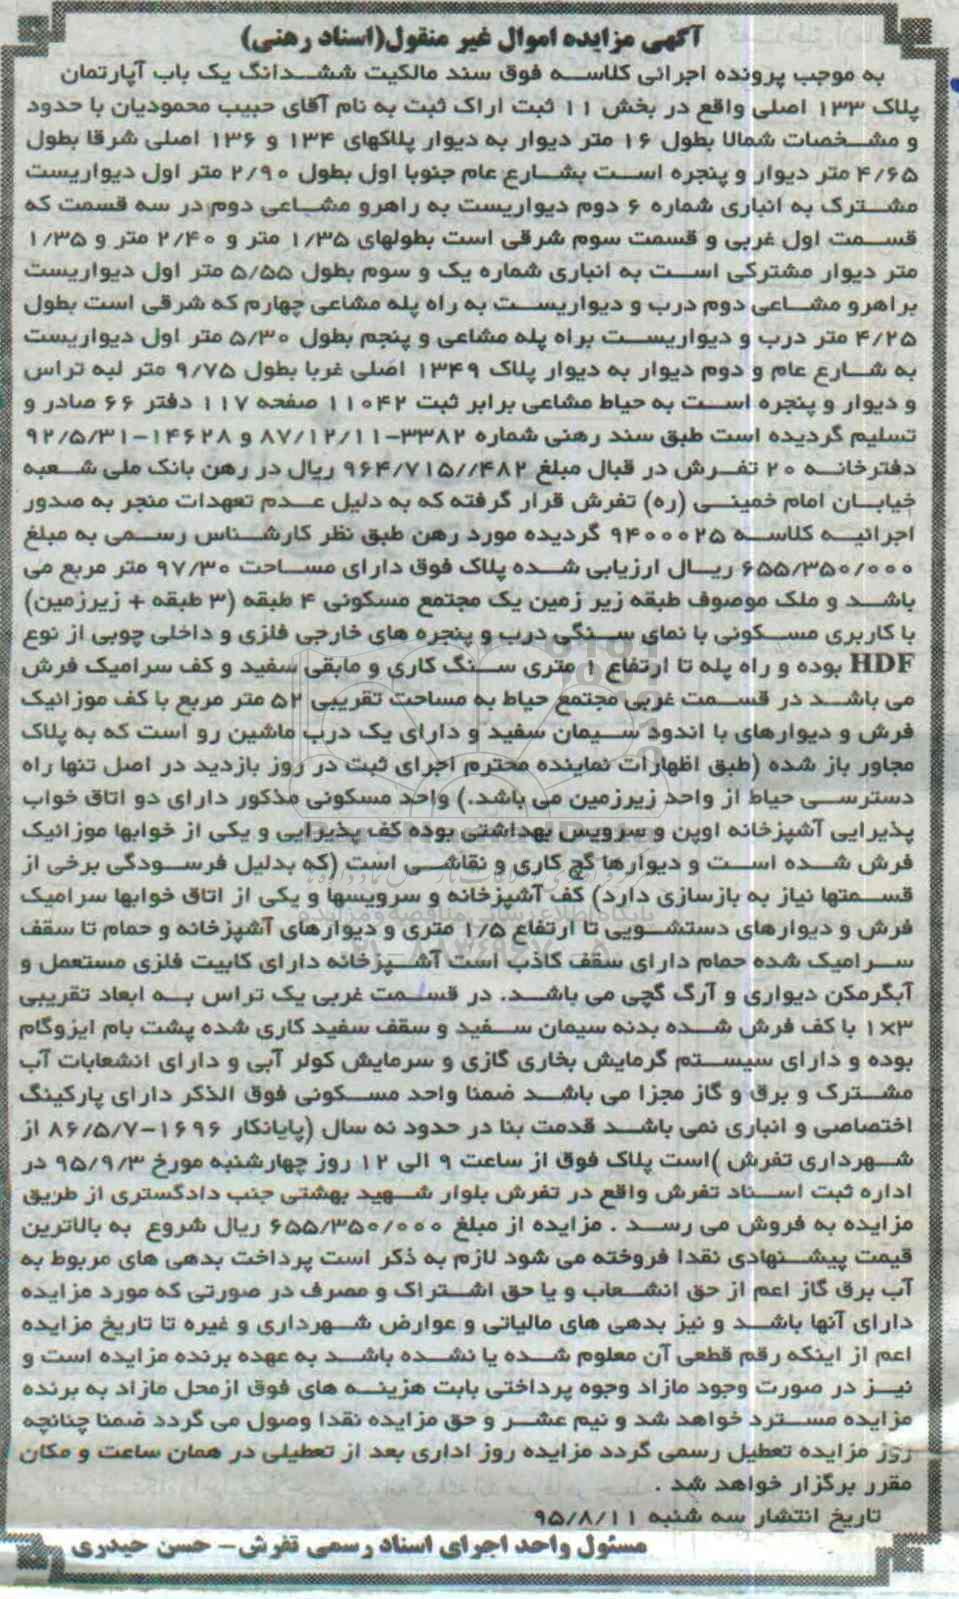 آگهی مزایده اموال غیر منقول(اسناد رهنی)
به موجب پرونده اجرائی کلاسه فوق سند مالکیت ششدانگ یک باب آپارتمان
پلاک ۱۳۳ اصلی واقع در بخش ۱۱ ثبت اراک ثبت به نام آقای حبیب محمودیان با حدود
و مشخصات شمالا بطول ۱۶ متر دیوار به دیوار پلاکهای ۱۳۴ و ۱۳۶ اصلی شرقا بطول
۴/۶۵ متر دیوار و پنجره است بشارع عام جنوبا اول بطول ۲/۹۰ متر اول دیواریست
مشترک به انباری شماره ۶ دوم دیواریست به راهرو مشاعی دوم در سه قسمت که
قسمت اول غربی و قسمت سوم شرقی است بطولهای ۱/۳۵ متر و ۲/۴۰ متر و ۱/۳۵
متر دیوار مشترکی است به انباری شماره یک و سوم بطول ۵/۵۵ متر اول دیواریست
براهرو مشاعی دوم درب و دیواریست به راه پله مشاعی چهارم که شرقی است بطول
۴/۲۵ متر درب و دیواریست براه پله مشاعی و پنجم بطول ۵/۳۰ متر اول دیواریست
به شارع عام و دوم دیوار به دیوار پلاک ۱۳۴۹ اصلی غربا بطول ۹/۷۵ متر لبه تراس
و دیوار و پنجره است به حیاط مشاعی برابر ثبت ۱۱۰۴۲ صفحه ۱۱۷ دفتر ۶۶ صادر و
تسلیم گردیده است طبق سند رهنی شماره ۳۳۸۲-۸۷/۱۲/۱۱ و ۱۴۶۲۸-۹۲/۵/۳۱
دفترخانه ۲۰ تفرش در قبال مبلغ ۹۶۴/۷۱۵//۴۸۲ ریال در رهن بانک ملی شعبه
خیابان امام خمینی (ره) تفرش قرار گرفته که به دلیل عدم تعهدات منجر به صدور
اجرائیه کلاسه ۹۴۰۰۰۲۵ گردیده مورد رهن طبق نظر کارشناس رسمی به مبلغ
۶۵۵/۳۵۰/۰۰۰ ریال ارزیابی شده پلاک فوق دارای مساحت ۹۷/۳۰ متر مربع می
باشد و ملک موصوف طبقه زیر زمین یک مجتمع مسکونی ۴ طبقه (۳ طبقه + زیرزمین)
با کاربری مسکونی با نمای سنگی درب و پنجره های خارجی فلزی و داخلی چوبی از نوع
HDF بوده و راه پله تا ارتفاع ۱ متری سنگ کاری و مابقی سفید و کف سرامیک فرش
می باشد در قسمت غربی مجتمع حیاط به مساحت تقریبی ۵۲ متر مربع با کف موزائیک
فرش و دیوارهای با اندود سیمان سفید و دارای یک درب ماشین رو است که به پلاک
مجاور باز شده (طبق اظهارات نماینده محترم اجرای ثبت در روز بازدید در اصل تنها راه
دسترسی حیاط از واحد زیرزمین می باشد.) واحد مسکونی مذکور دارای دو اتاق خواب
پذیرایی آشپزخانه اوپن و سرویس بهداشتی بوده کف پذیرایی و یکی از خوابها موزائیک
فرش شده است و دیوارها گچ کاری و نقاشی است (که بدلیل فرسودگی برخی از
قسمتها نیاز به بازسازی دارد) کف آشپزخانه و سرویسها و یکی از اتاق خوابها سرامیک
فرش و دیوارهای دستشویی تا ارتفاع ۱/۵ متری و دیوارهای آشپزخانه و حمام تا سقف
سرامیک شده حمام دارای سقف کاذب است آشپزخانه دارای کابیت فلزی مستعمل و
آبگرمکن دیواری و آرگ گچی می باشد. در قسمت غربی یک تراس به ابعاد تقریبی
۱×۳ با کف فرش شده بدنه سیمان سفید و سقف سفید کاری شده پشت بام ایزوگام
بوده و دارای سیستم گرمایش بخاری گازی و سرمایش کولر آبی و دارای انشعابات آب
مشترک و برق و گاز مجزا می باشد ضمنا واحد مسکونی فوق الذکر دارای پارکینگ
اختصاصی و انباری نمی باشد قدمت بنا در حدود نه سال (پایانکار ۱۶۹۶-۸۶/۵/۷ از
شهرداری تفرش )است پلاک فوق از ساعت ۹ الی ۱۲ روز چهارشنبه مورخ ۹۵/۹/۳ در
اداره ثبت اسناد تفرش واقع در تفرش بلوار شهید بهشتی جنب دادگستری از طریق
مزایده به فروش می رسد . مزایده از مبلغ ۶۵۵/۳۵۰/۰۰۰ ریال شروع به بالاترین
قیمت پیشنهادی نقدا فروخته می شود لازم به ذکر است پرداخت بدهی های مربوط به
آب برق گاز اعم از حق انشعاب و یا حق اشتراک و مصرف در صورتی که مورد مزایده
دارای آنها باشد و نیز بدهی های مالیاتی و عوارض شهرداری و غیره تا تاریخ مزایده
اعم از اینکه رقم قطعی آن معلوم شده یا نشده باشد به عهده برنده مزایده است و
نیز در صورت وجود مازاد وجوه پرداختی بابت هزینه های فوق ازمحل مازاد به برنده
مزایده مسترد خواهد شد و نیم عشر و حق مزایده نقدا وصول می گردد ضمنا چنانچه
روز مزایده تعطیل رسمی گردد مزایده روز اداری بعد از تعطیلی در همان ساعت و مکان
مقرر برگزار خواهد شد .
تاریخ انتشار سه شنبه ۹۵/۸/۱۱
مسئول واحد اجرای اسناد رسمی تفرش- حسن حیدری